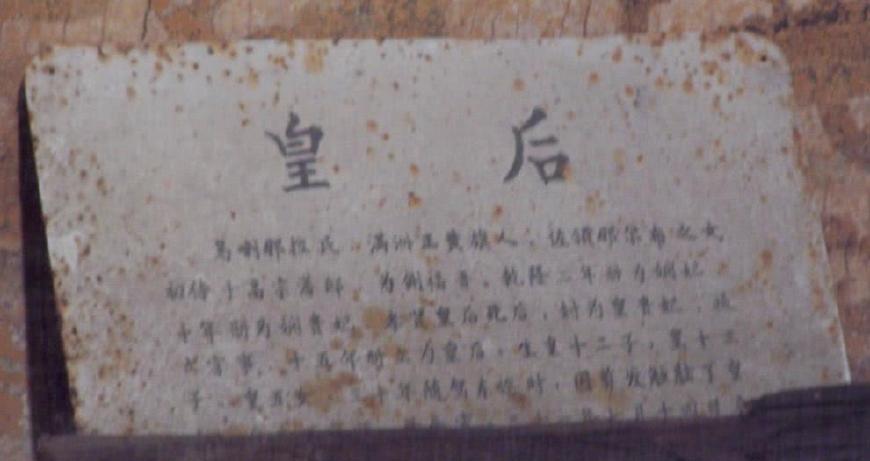 皇 后
乌喇那拉氏，满洲正黄旗人，佐领那尔布之女，
初侍于高宗潜邸，为侧福晋。乾隆二年册为娴妃
十年册为娴贵妃 孝贤皇后死后，封为皇贵妃，摄
六宫事。十五年册立为皇后。生皇十二子，皇十三
子、皇五女 三十年随驾南巡时，因剪发触犯了皇
十四日